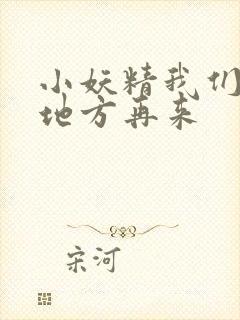 小妖精我们
地方再来
宋河